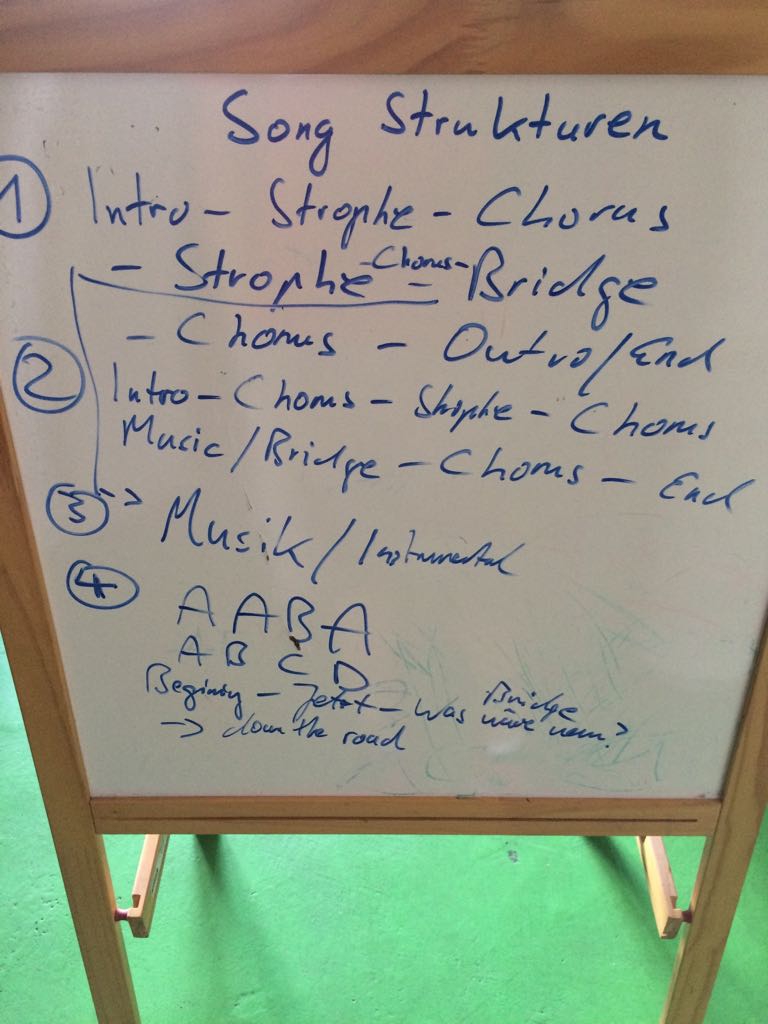 Song Strukturen
1 Intro - Strophe - Chorus
- Strophe - Chorus - Bridge
- Chorus - Outro/End
2 Intro - Chorus - Strophe - Chorus
Music/Bridge - Chorus - End
3 Musik/Instrumental
4
A A B A
A B C D
Bridge
Begining - Jetzt - was wäre wenn?
→ down the road